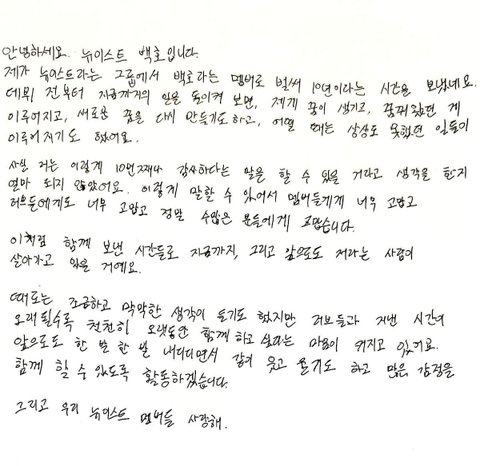 안녕하세요. 뉴이스트 백호입니다.
제가 뉴이스트라는 그룹에서 백호라는 멤버로 벌써 10년이라는 시간을 보냈네요.
데뷔 전부터 지금까지의 일을 돌이켜 보면, 제게 꿈이 생기고, 꿈꿔왔던 게
이루어지고, 새로운 꿈을 다시 만들기도하고, 어떨 때는 상상도 못했던 일들이
이루어지기도 했어요.
사실 저는 이렇게 10번째나 감사하다는 말을 할 수 있을 거라고 생각을 한지
얼마 되지 않았어요. 이렇게 말할 수 있어서 멤버들에게 너무 고맙고
러브들에게도 너무 고맙고 정말 수많은 분들에게 고맙습니다.
이처럼 함께 보낸 시간들로 지금까지, 그리고 앞으로도 저라는 사람이
살아가고 있을 거예요.
때로는 조급하고 막막한 생각이 들기도 했지만 러브들과 지낸 시간이
오래될수록 천천히 오랫동안 함께 하고 싶다는 마음이 커지고 있어요.
앞으로도 한 발 한 발 내디디면서 같이 웃고 울기도 하고 많은 감정을
함께 할 수 있도록 활동하겠습니다.
그리고 우리 뉴이스트 멤버들 사랑해.